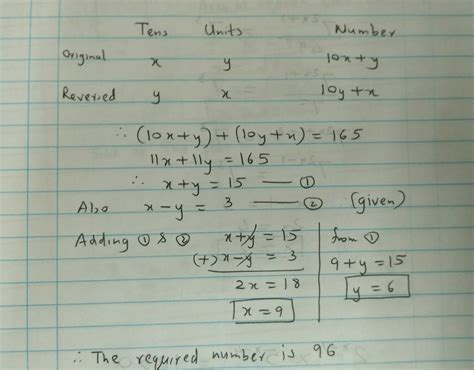 Tens Units Number
Original x y 10x+y
Reversed y x 10y+x
∴ (10x+y)+(10y+x) = 165
11x+11y = 165
∴ x+y = 15 — ①
Also x-y = 3 — ② (given)
Adding ① & ② x+y = 15
(+) x-y = 3
2x = 18
x=9
from ①
9+y=15
y=6
∴ The required number is 96